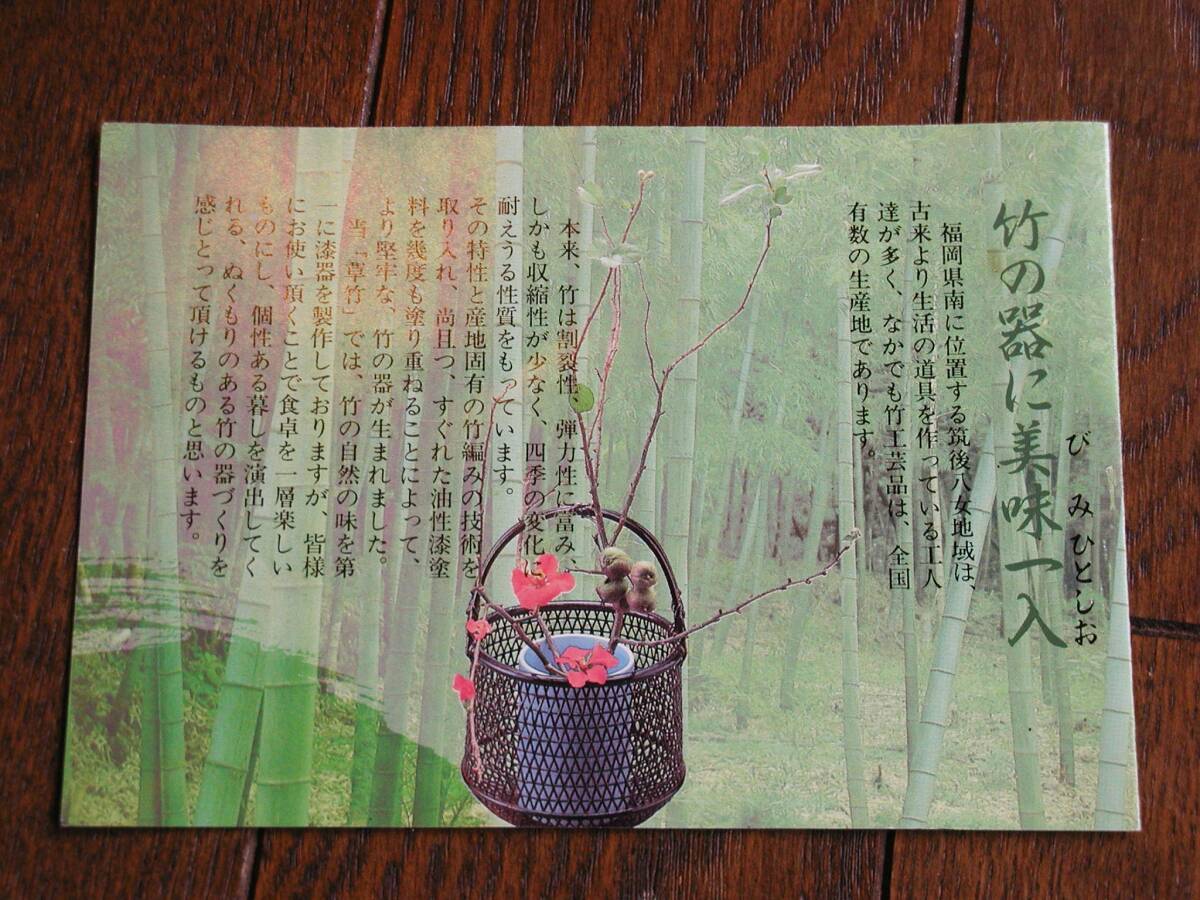 竹の器に美味一入
び みひとしお
福岡県南に位置する筑後八女地域は、
古来より生活の道具を作っている工人
達が多く、なかでも竹工芸品は、全国
有数の生産地であります。
本来、竹は割裂性、弾力性に富み、
しかも収縮性が少なく、四季の変化に
耐えうる性質をもっています。
その特性と産地固有の竹編みの技術を
取り入れ、尚且つ、すぐれた油性漆塗
料を幾度も塗り重ねることによって、
より堅牢な、竹の器が生まれました。
当「草竹」では、竹の自然の味を第
一に漆器を製作しておりますが、皆様
にお使い頂くことで食卓を一層楽しい
ものにし、個性ある暮しを演出してく
れる、ぬくもりのある竹の器づくりを
感じとって頂けるものと思います。